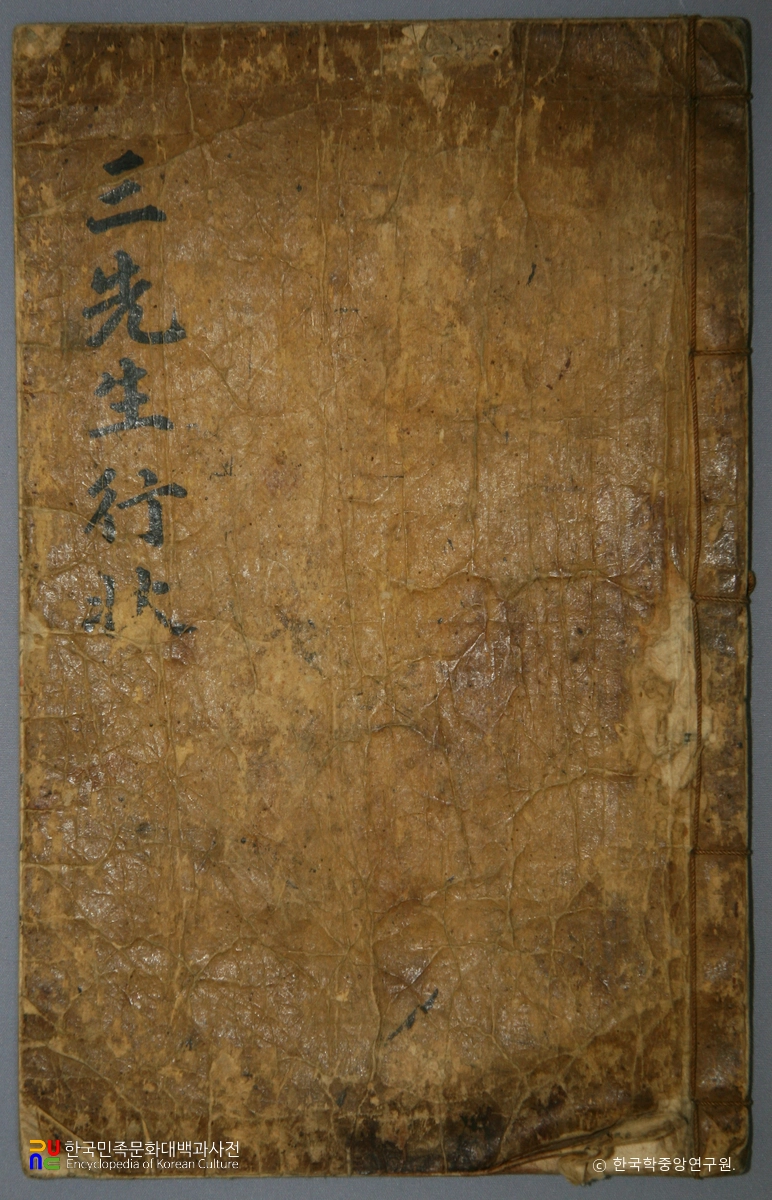 三先生行狀
한국민족문화대백과사전
Encyclopedia of Korean Culture
© 한국학중앙연구원.